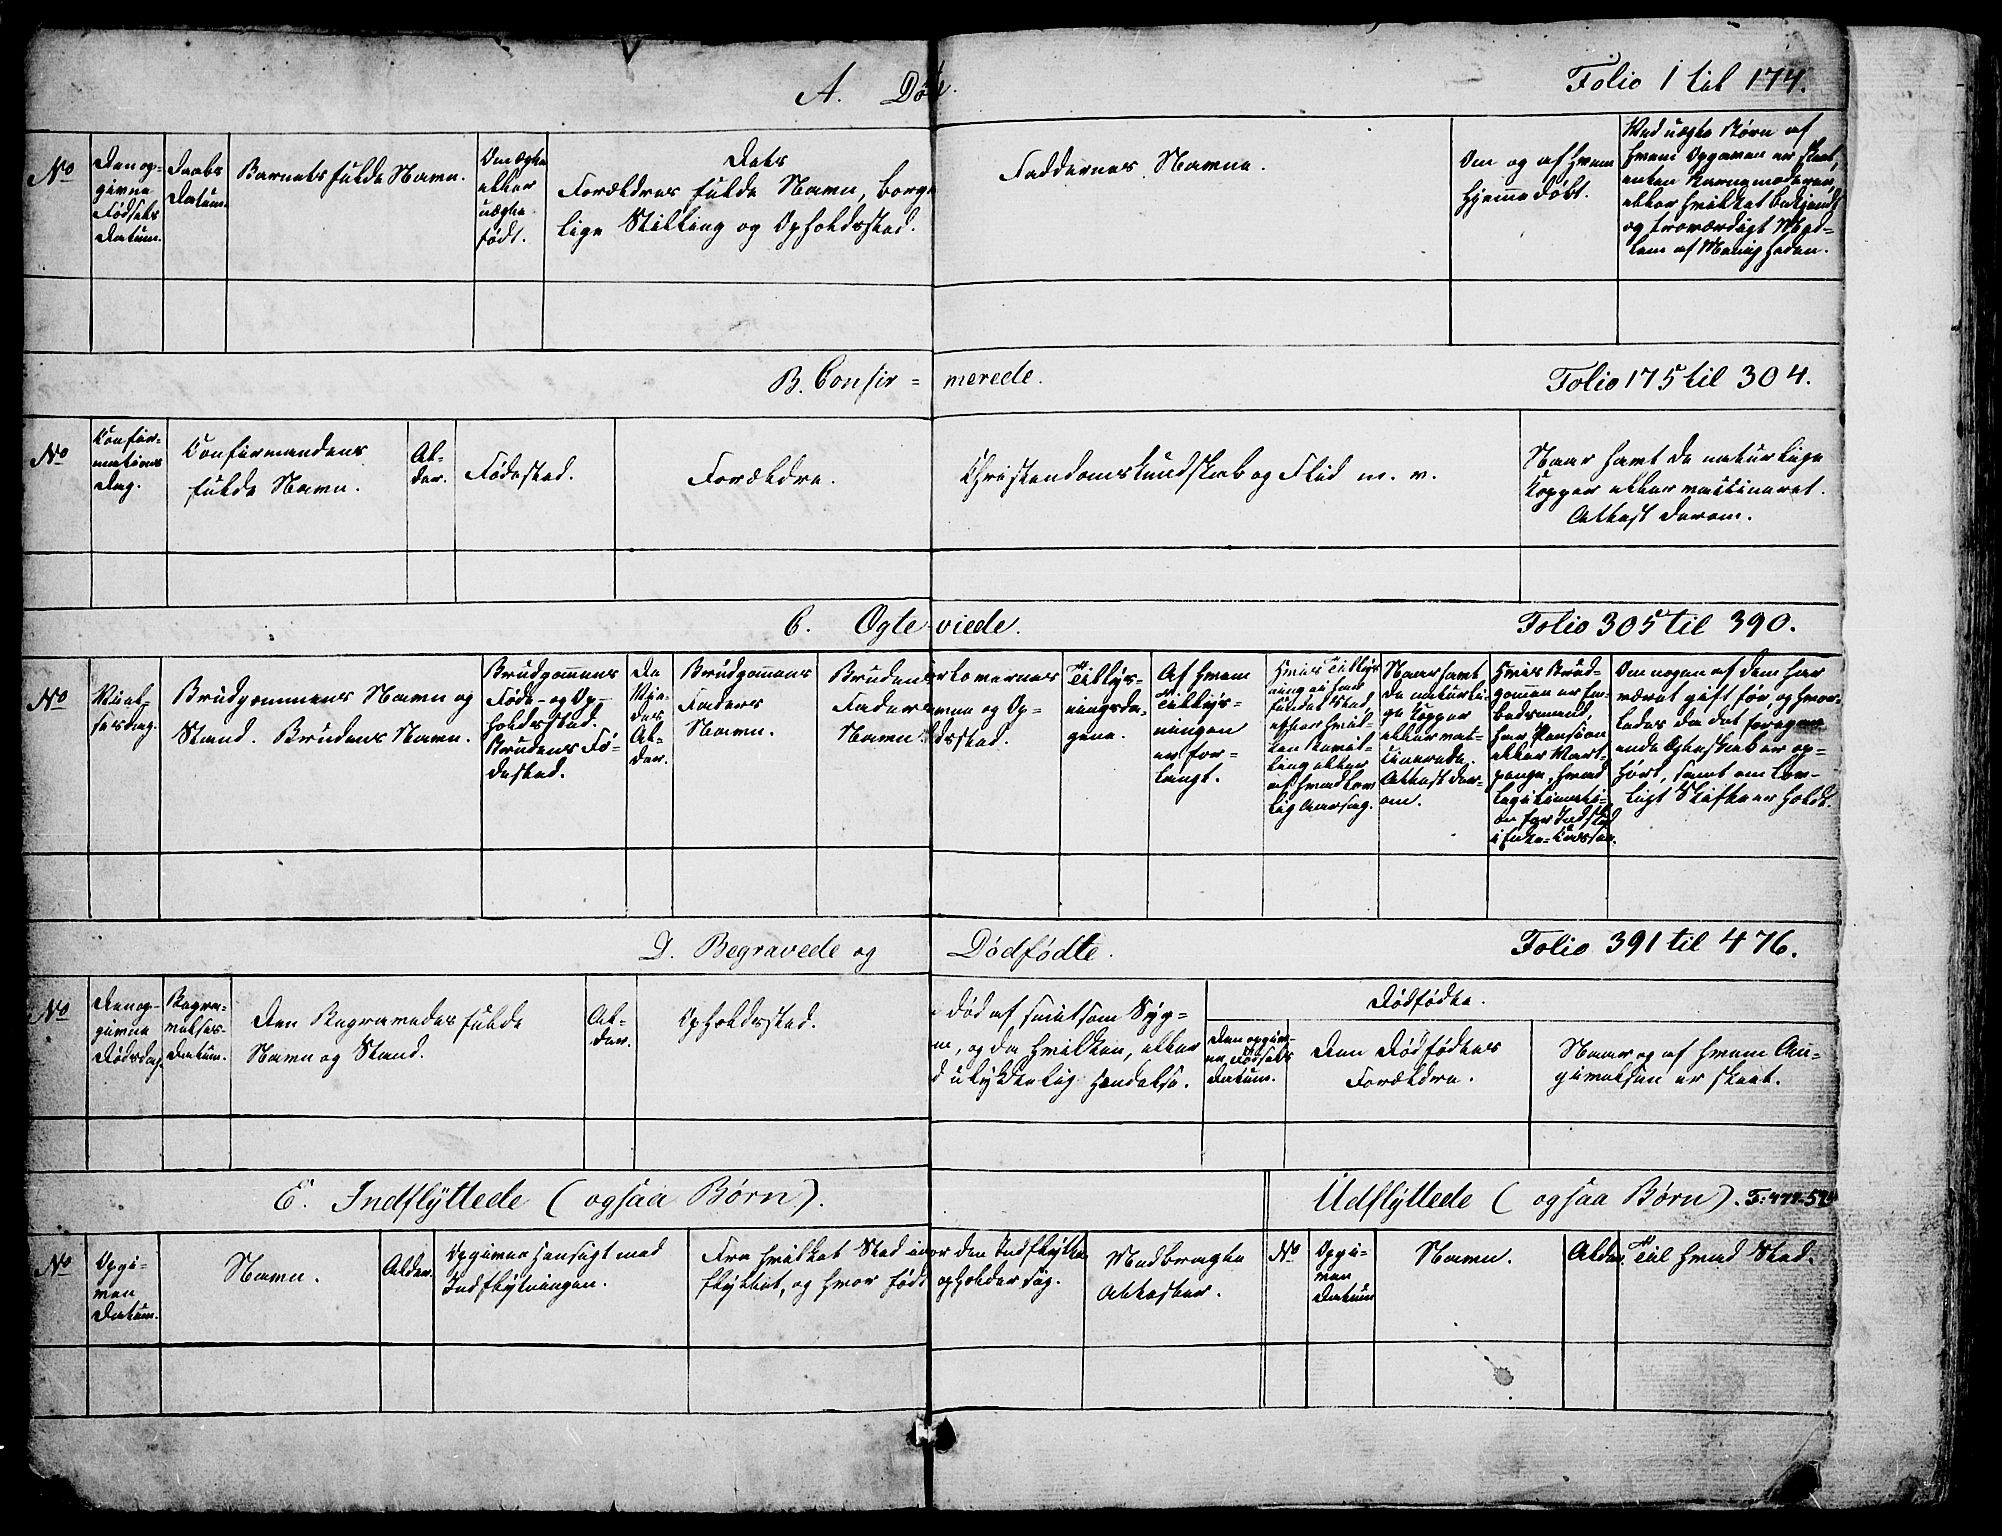 A. Døbte.
Folio 1 til 174.
No
Den op-
givne
Fødsels
Datum.
Daabs
Datum.
Barnets fulde Navn.
Om ægte
eller
uægte
født.
Dets
Forældres fulde Navn, borge
lige Stilling og Opholdssted.
Faddernes Navne.
Om og af hvem
hjemmedøbt.
Ved uægte Børn af
hvem Opgaven er skeet,
enten Barnemoderen,
eller hvilket bekjendt
og troværdigt Med-
lem af Menigheden.
B. Confir=merede.
Folio 175 til 304.
No
Confir-
mations
Dag.
Confirmandens
fulde Navn.
Al-
der.
Fødested.
Forældre.
Christendomskundskab og Flid m. v.
Naar havt de naturlige
Kopper eller vaccineret.
Attest derom.
C. Ægteviede.
Folio 305 til 390.
No
Viel-
sesdag.
Brudgommens Navn og
Stand. Brudens Navn.
Brudgommens
Føde- og Op-
holdssted.
Brudens Fø-
dested.
De
Al-
der.
Brudgommens
Faders
Navn.
Brudens
Faders
Navn
Forlovernes
Navne og Op-
holdssted.
Tillys-
ningsda-
gene.
Af hvem
Tillys-
ningen
er for-
langt.
Hvis Tillys
ning ei har
fundet Sted,
efter hvil-
ken Bevil-
ling eller
af hvad lov
lig Aarsag.
Naar havt
de naturli-
ge Kopper
eller vac-
cinerede.
Attest der-
om.
Hvis Brud-
gommen er
har Pension
eller Vart-
penge, hvad
Legitimati-
on for Indskud
i Enke-Cassen.
Om nogen af dem har
været gift før, og hvor-
ledes da det foregaa-
ende Ægteskab er op-
hørt, samt om lov-
ligt Skifte er holdt.
D. Begravede og Dødfødte.
Folio 391 til 476.
No
Den op-
givne
Dødsdag.
Begra-
velses-
Datum.
Den Begravedes fulde
Navn og Stand.
Al-
der.
Opholdssted.
død af smitsom Syg-
og da hvilken, eller
ulykkelig Hændelse.
Dødfødte.
Den opgiv-
ne Fødsels
Datum.
Den Dødfødtes
Forældre.
Naar og af hvem An-
givelsen er skeet.
E. Indflyttede (ogsaa Børn).
Udflyttede (ogsaa Børn).
No
Opgi-
ven
Datum.
Navn.
Alder.
Opgiven Hensigt med
Indflytningen.
Fra hvilket Sted
flyttet, og hvor født
hvor den Indflytte
opholder sig.
Medbragte
Attester.
No
Opgi-
ven
Datum
Navn.
Alder.
Til hvad Sted.